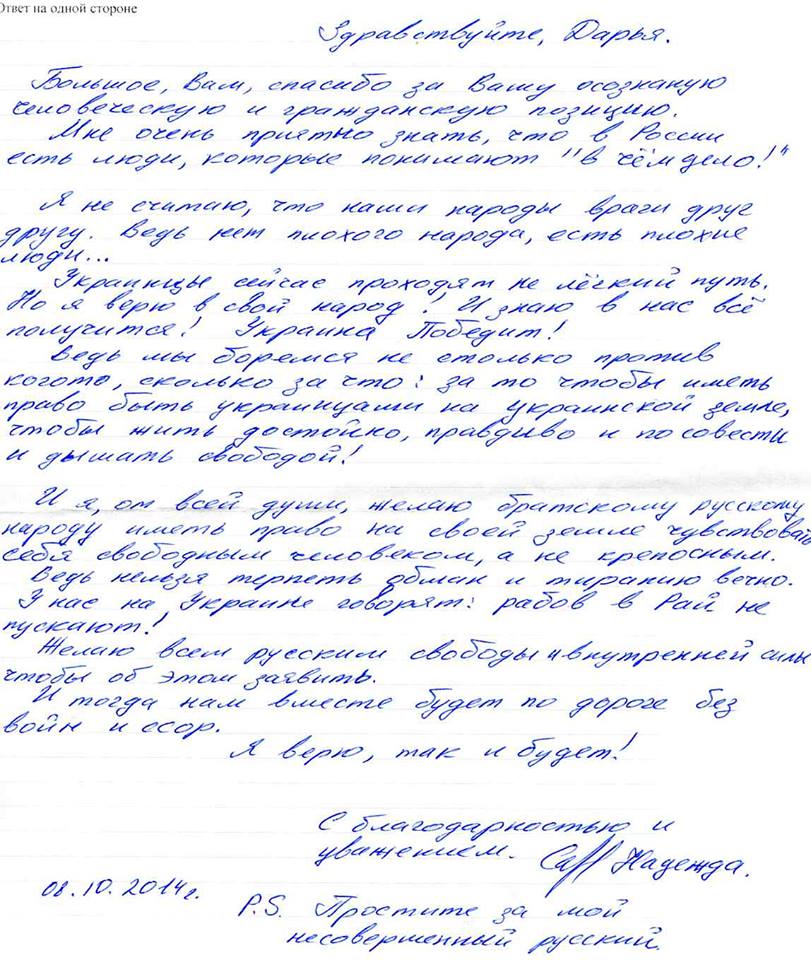 Ответ на одной стороне
Здравствуйте, Дарья.
Большое, Вам, спасибо за Вашу осознаную
человеческую и гражданскую позицию.
Мне очень приятно знать, что в России
есть люди, которые понимают "в чём дело!"
Я не считаю, что наши народы враги друг
другу. Ведь нет плохого народа, есть плохие
люди...
Украинцы сейчас проходят не лёгкий путь.
Но я верю в свой народ! И знаю в нас всё
получится! Украина Победит!
Ведь мы боремся не столько против
когото, сколько за что: за то чтобы иметь
право быть украинцами на украинской земле,
чтобы жить достойно, правдиво и по совести
и дышать свободой!
И я, от всей души, желаю братскому русскому
народу иметь право на своей земле чувствовать
себя свободным человеком, а не крепосным.
Ведь нельзя терпеть обман и тиранию вечно.
У нас на Украине говорят: рабов в Рай не
пускают!
Желаю всем русским свободы и внутренней силы
чтобы об этом заявить.
И тогда нам вместе будет по дороге без
войн и ссор.
Я верю, так и будет!
С благодарностью и
уважением. Надежда.
08.10.2014г.
P.S. Простите за мой
несоверменный русский.